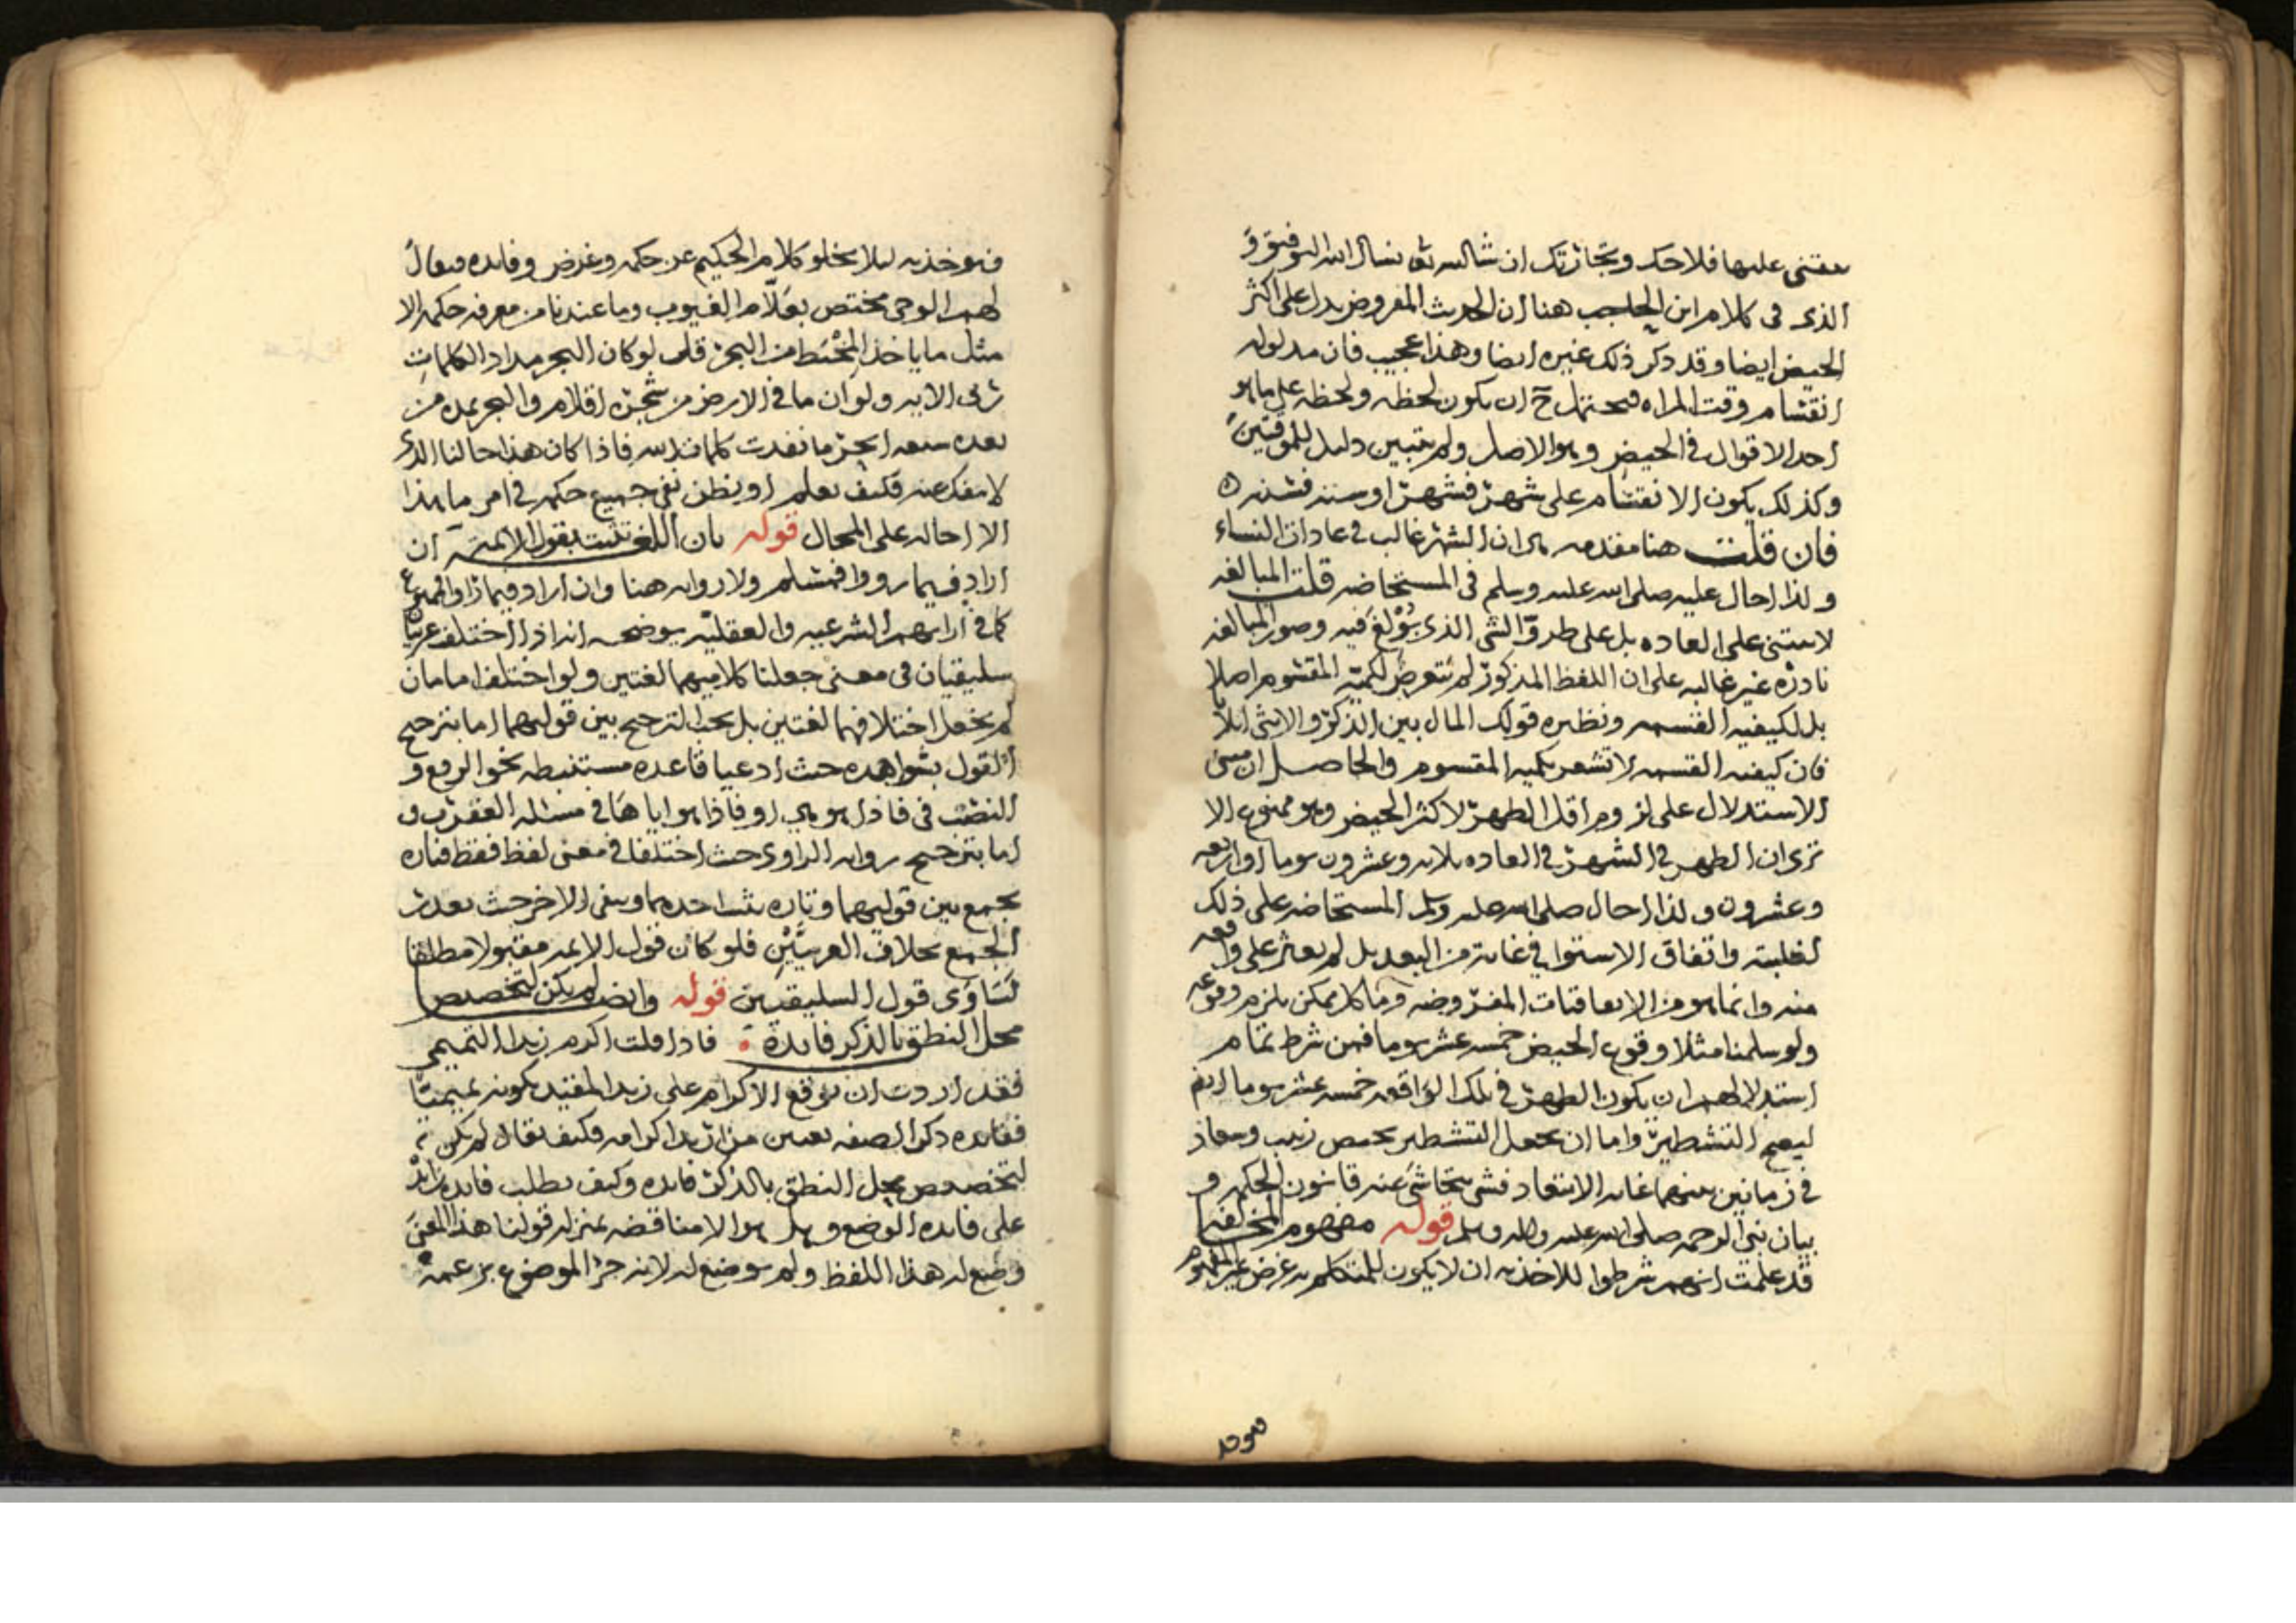 عليها فلاحك وتجارتك ان شا الله تعالى نسال الله التوفيق و
الذى فى كلام ابن الحاجب هنا ان الحديث المفروض يدل على اكثر
الحيض ايضا وقد ذكر ذلك غيره ايضا وهذا عجيب فان مدلوله
انقسام وقت المراه فيحتمل ح ان يكون لحظه ولحظه على ما هو
احد الاقوال فى الحيض وهو الاصل ولم يتبين دليل للموقتين
وكذلك يكون الانقسام على شهر فشهر او سنه فسنه ه
فان قلت هنا مقدمه هى ان الشهر غالب فى عادات النساء
ولذا احال عليه صلى الله عليه وسلم فى المستحاضه قلت المبالغه
لا تبتنى على العاده بل على طروّ الشى الذى بُولغ فيه وصور المبالغه
نادره غير غالبه على ان اللفظ المذكور لم يتعرض لكميّه المقسوم اصلا
بل لكيفيه القسمه ونظيره قولك المال بين الذكر والانثى اثلاثا
فان كيفيه القسمه لا تشعر بكميه المقسوم والحاصل ان مبنى
الاستدلال على لزوم اقل الطهر لاكثر الحيض وهو ممنوع الا
ترى ان الطهر فى الشهر فى العاده ثلاثه وعشرون يوما او اربعه
وعشرون ولذا احال صلى الله عليه وسلم المستحاضه على ذلك
لغلبته واتفاق الاستوا فى غايه من البعد بل لم يعثر على واقعه
منه وانما هو من الاتفاقيات المفروضه وما كل ممكن يلزم وقوعه
ولو سلمنا مثلا وقوع الحيض خمسه عشر يوما فمن شرط تمام
استدلالهم ان يكون الطهر فى تلك الواقعه خمسه عشر يوما ايضا
ليصح التشطير واما ان يجعل التشطير بحيض زينب وسعاد
فى زمانين بينهما غايه الابتعاد فشى يتحاشى عنه قانون الحكمه و
بيان نبى الرحمه صلى الله عليه واله وسلم قوله مفهوم المخالفه
قد علمت انهم شرطوا للاخذ به ان لا يكون للمتكلم به غرض غير المفهوم
فيوخذ به ليلا يخلو كلام الحكيم عن حكمه وغرض وفايده فيقال
لهم الوحى مختص بعلّام الغيوب وما عندنا من معرفه حكمه الا
مثل ما ياخذ المِخْيَط من البحر قل لو كان البحر مدادا لكلمات
ربى الايه ولو ان ما فى الارض من شجره اقلام والبحر يمده من
بعده سبعه ابحر ما نفدت كلمات الله فاذا كان هذا حالنا الذى
لا ينفك عنه فكيف نعلم او نظن نفى جميع حكمه فى امر ما هذا
الا احاله على المحال قوله بان اللغه تثبت بقول الايمه ان
اراد فيما رووا فمسلم ولا روايه هنا وان اراد فيما راوا فممنوع
كما فى ارايهم الشرعيه والعقليّه يوضحه انه اذا اختلف عربيان
سليقيان فى معنى جعلنا كلاميهما لغتين ولو اختلف امامان
لم يجعل اختلافهما لغتين بل يجب الترجيح بين قوليهما اما بترجيح
القول بشواهده حيث ادعيا قاعده مستنبطه نحو الرفع و
النصب فى فاذا هو هى او فاذا هو اياها فى مسئله العقرب و
اما بترجيح روايه الراوى حيث اختلفا فى معنى لفظ فقط فتاره
يجمع بين قوليهما وتاره يثبت احدهما وينفى الاخر حيث تعذر
الجمع بخلاف العربيَّيْن فلو كان قول الايمه مقبولا مطلقا
لتساوى قول السليقيين قوله وايضا لم يكن لتخصيص
محل النطق بالذكر فايدة فاذا قلت اكرم زيدا التميمى
فقد اردت ان توقع الاكرام على زيد المفيد بكونه تميميّا
ففايده ذكر الصفه تعيين من اريد اكرامه فكيف يقال لم يكن
لتخصيص محل النطق بالذكر فايده وكيف يطلب فايده زايده
على فايده الوضع وهل هو الا مناقضه بمنزله قولنا هذا المعنى
وضع له هذا اللفظ ولم يوضع له لانه جز الموضوع بزعمه
فيوخذ